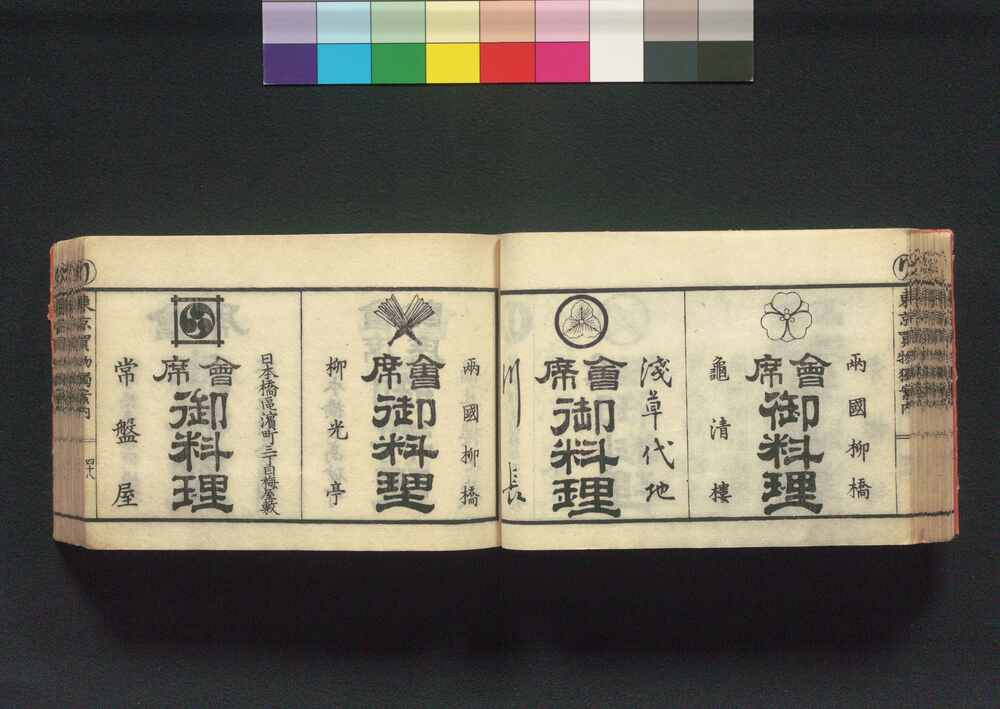 東京買物獨案内
兩國柳橋
會席
御料理
龜清樓
淺草代地
會席
御料理
川長
兩國柳橋
會席
御料理
柳光亭
日本橋區濱町三丁目梅屋敷
會席
御料理
常盤屋
東京買物獨案内
四十八